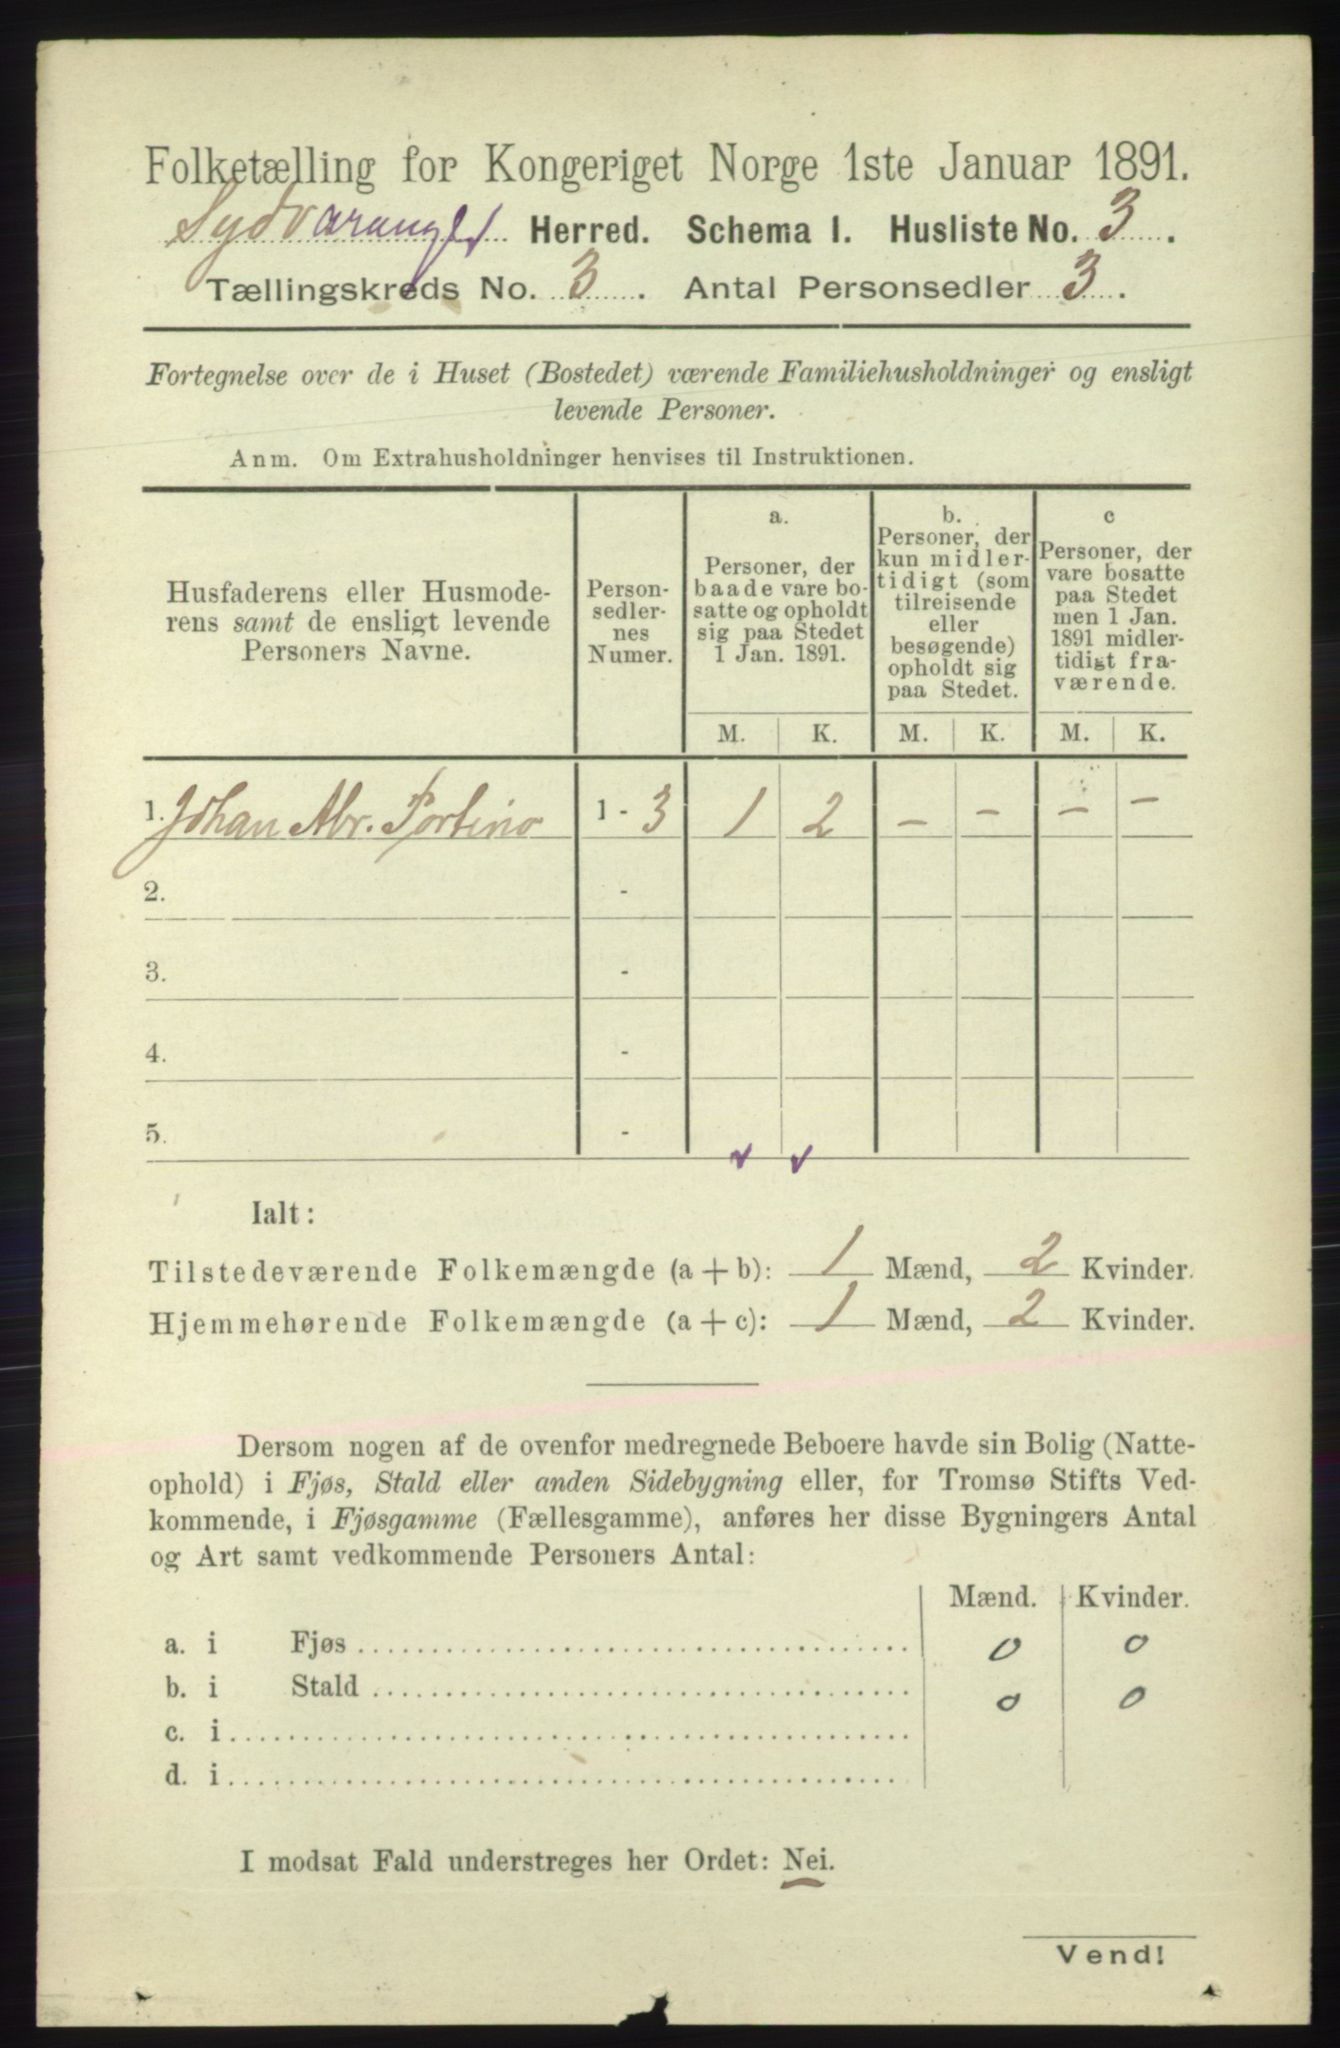 Folketælling for Kongeriget Norge 1ste Januar 1891.
Sydvaranger Herred. Schema I. Husliste No. 3.
Tællingskreds No. 3. Antal Personsedler 3.
Fortegnelse over de i Huset (Bostedet) værende Familiehusholdninger og ensligt
levende Personer.
Anm. Om Extrahusholdninger henvises til Instruktionen.
Husfaderens eller Husmode-
rens samt de ensligt levende
Personers Navne.
Person-
sedler-
nes
Numer.
a.
Personer, der
baade vare bo-
satte og opholdt
sig paa Stedet
1 Jan. 1891.
b.
Personer, der
kun midler-
tidigt (som
tilreisende
eller
besøgende)
opholdt sig
paa Stedet.
c
Personer, der
vare bosatte
paa Stedet
men 1 Jan.
1891 midler-
tidigt fra-
værende.
M. K. M. K. M. K.
1. Johan Abr. Portino 1 - 3 1 2 - - - -
2. -
3. -
4. -
5. -
Ialt:
Tilstedeværende Folkemængde (a + b): 1 Mænd, 2 Kvinder.
Hjemmehørende Folkemængde (a + c): 1 Mænd, 2 Kvinder.
Dersom nogen af de ovenfor medregnede Beboere havde sin Bolig (Natte-
ophold) i Fjøs, Stald eller anden Sidebygning eller, for Tromsø Stifts Ved-
kommende, i Fjøsgamme (Fællesgamme), anføres her disse Bygningers Antal
og Art samt vedkommende Personers Antal:
Mænd. Kvinder.
a. i Fjøs 0 0
b. i Stald 0 0
c. i
d. i
I modsat Fald understreges her Ordet: Nei.
Vend!